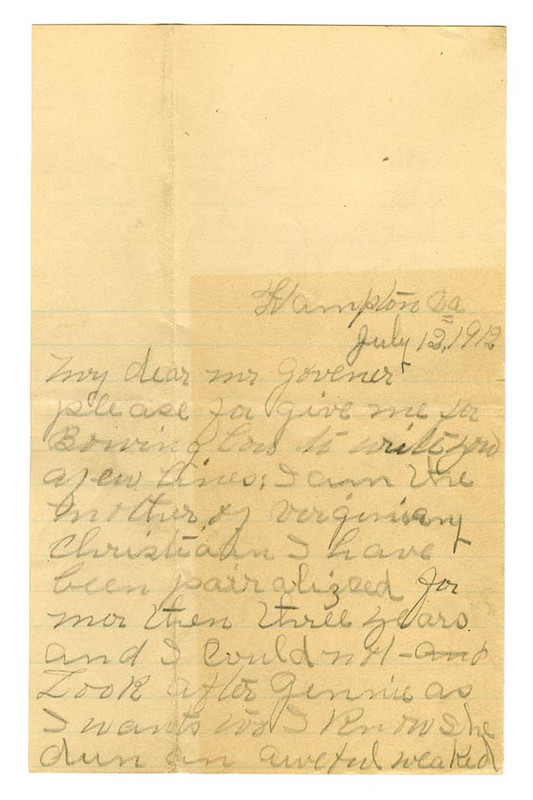 Hampton Va
July 12, 1912
My dear mr Governer
please for give me for
Bowing low to write you
a few lines: I am the
mother of Virginiany
Christian I have
been pairalized for
mor then three years
and I could not and
Look after Gennie as
I wants too I know she
dun an aweful weaked